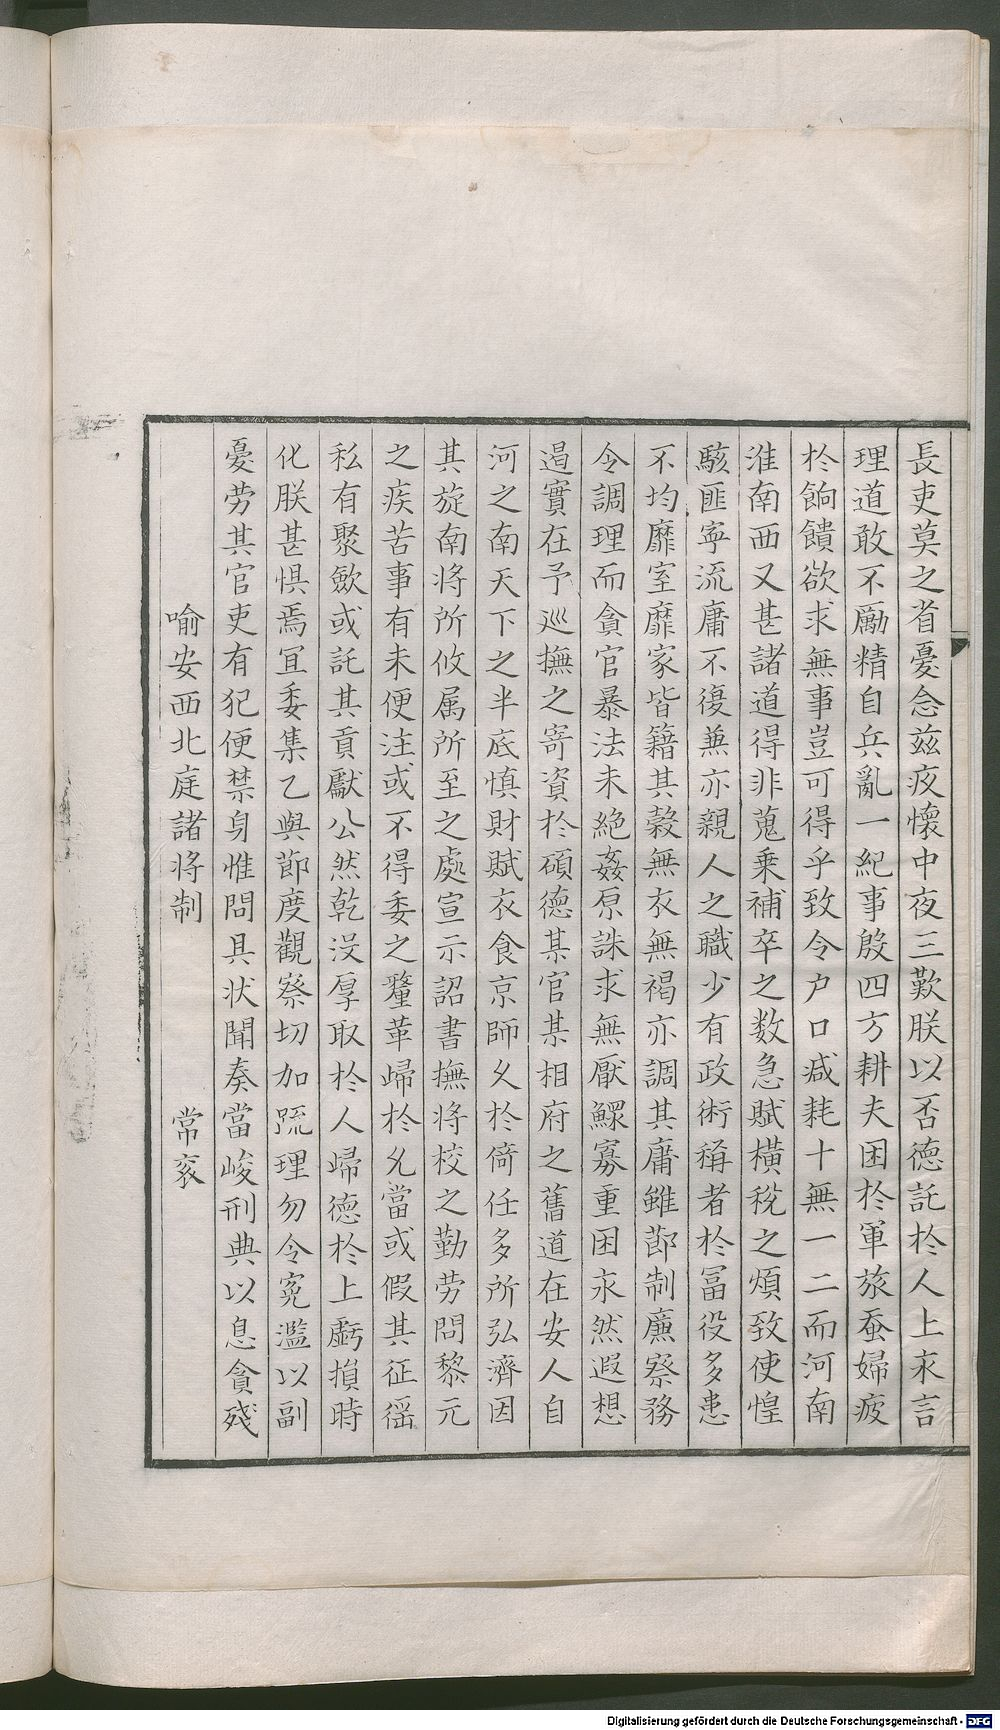 長吏莫之省憂念兹疚懷中夜三歎朕以否德託於人上永言
理道敢不勵精自兵亂一紀事殷四方耕夫困於軍旅蚕婦疲
於餉饋欲求無事豈可得乎致令户口减耗十無一二而河南
淮南西又甚諸道得非蒐乗補卒之数急賦橫税之煩致使惶
駭匪寜流庸不復兼亦親人之職少有政術稱者於冨役多患
不均靡室靡家皆籍其穀無衣無褐亦調其庸雖節制廉察務
令調理而貪官暴法未絶姦原誅求無厭鰥寡重困永然遐想
遏實在予巡撫之寄資於碩德某官某相府之舊道在安人自
河之南天下之半底慎財賦衣食京師乆於倚任多所弘濟因
其旋南将所攸属所至之處宣示詔書撫将校之勤劳問黎元
之疾苦事有未便注或不得委之釐革歸於乆當或假其征徭
私有聚歛或託其貢獻公然乾没厚取於人歸德於上虧損時
化朕甚惧焉冝委集乙與節度觀察切加疏理勿令寃濫以副
憂劳其官吏有犯便禁身惟問具状聞奏當峻刑典以息貪殘
喻安西北庭諸将制　常衮
Digitalisierung gefördert durch die Deutsche Forschungsgemeinschaft - DFG